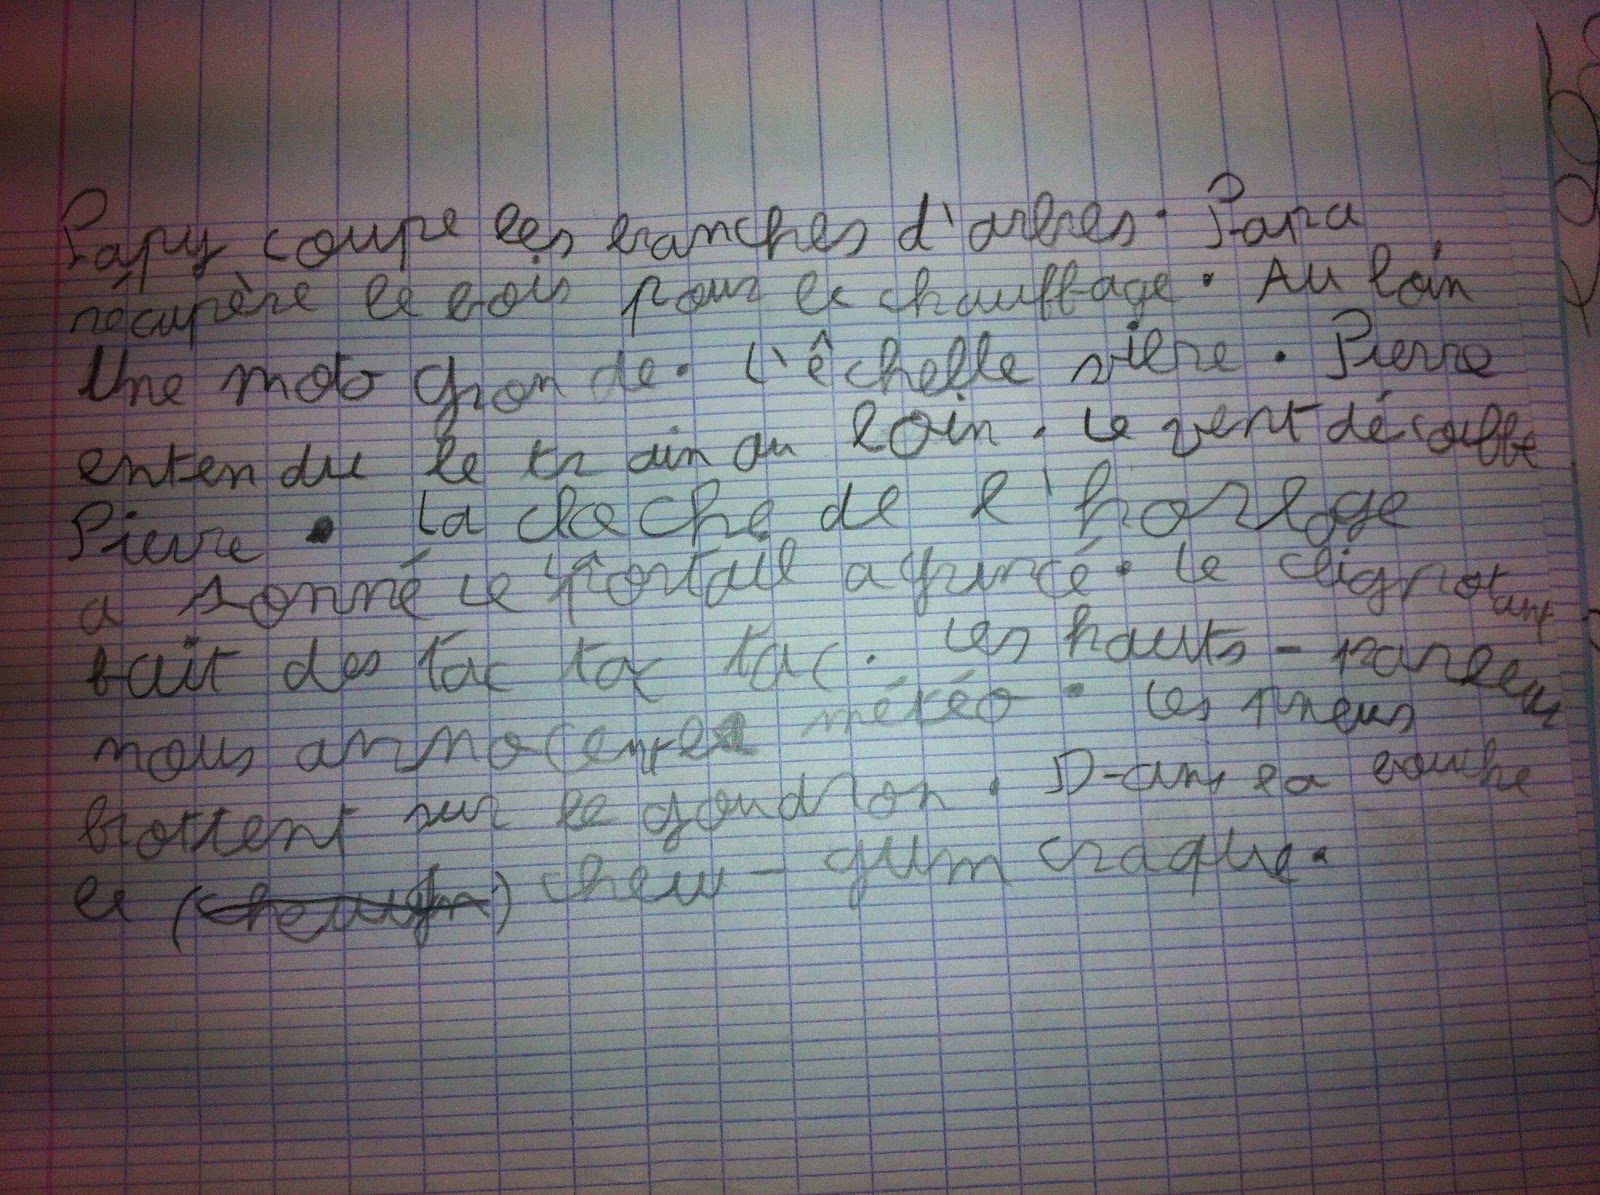 Papy coupe les branches d'arbres. Papa
récupère le bois pour le chauffage. Au loin
Une moto gronde. L'échelle vibre. Pierre
entendu le train au loin. Le vent décoiffe
Pierre. La cloche de l'horloge
a sonné Le portail a grincé. Le clignotant
fait des tac tac tac. Les hauts-parleurs
nous annocent la météo. Les pneus
frottent sur le goudron. Dans la bouche
le (cheuigm) cheu-gum craque.